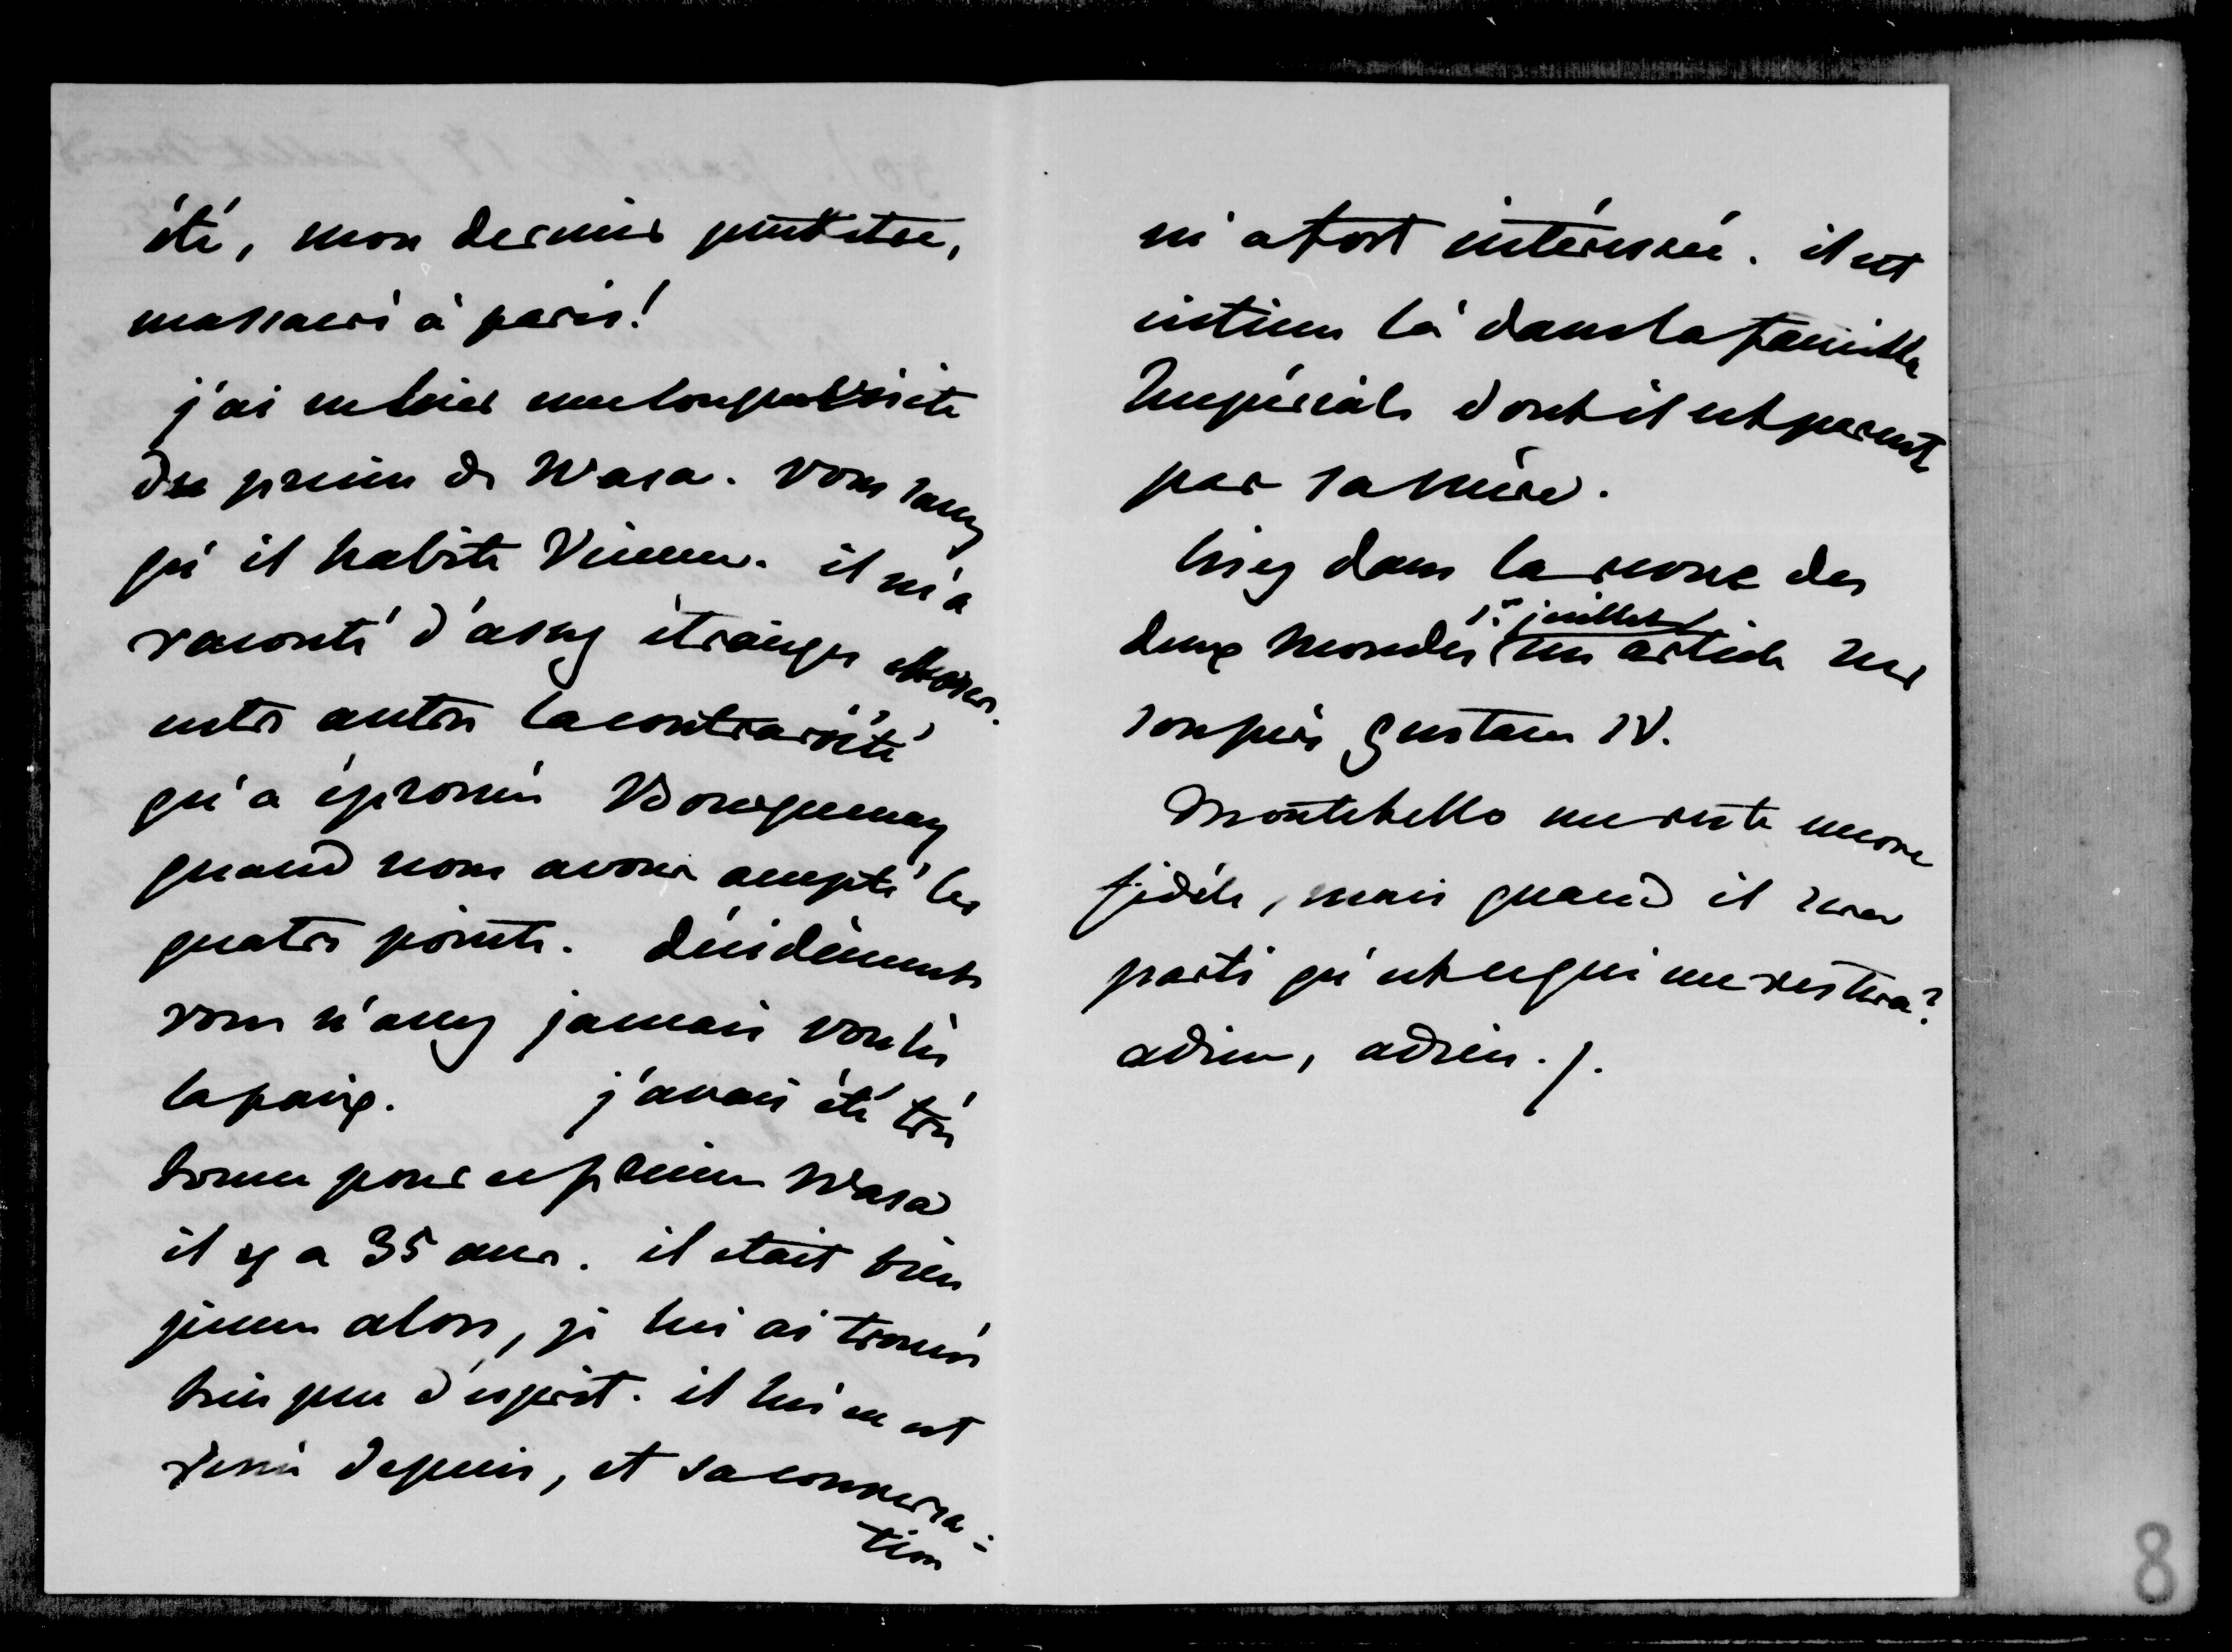 été, mon dernier peut être,
massacré à paris!
j'ai eu hier une longue visite
du prince de Wasa. vous savez
qu'il habite Vienne. il m'a
raconté d'assez étranges choses.
entr autres la contrariété
qu'a éprouvé Bourqueney
quand nous avons accepté les
quatre points. décidément
vous n'avez jamais voulu
la paix. j'avais été très
bonne pour ce prince Wasa
il y a 35 ans. il etait bien
jeune alors, je lui ai trouvé
bien peu d'esprit. il lui en est
venu depuis, et sa conversa=
tion
m'a fort intéressée. il est
intime là dans la famille
Impériale dont il est parent
par sa mère.
lisez dans la revue des
1er juillet
deux Mondes un article sur
son père Gustave IV.
Montebello me reste encore
fidèle, mais quand il sera
parti qu'est ce qui me restera?
adieu, adieu.
8